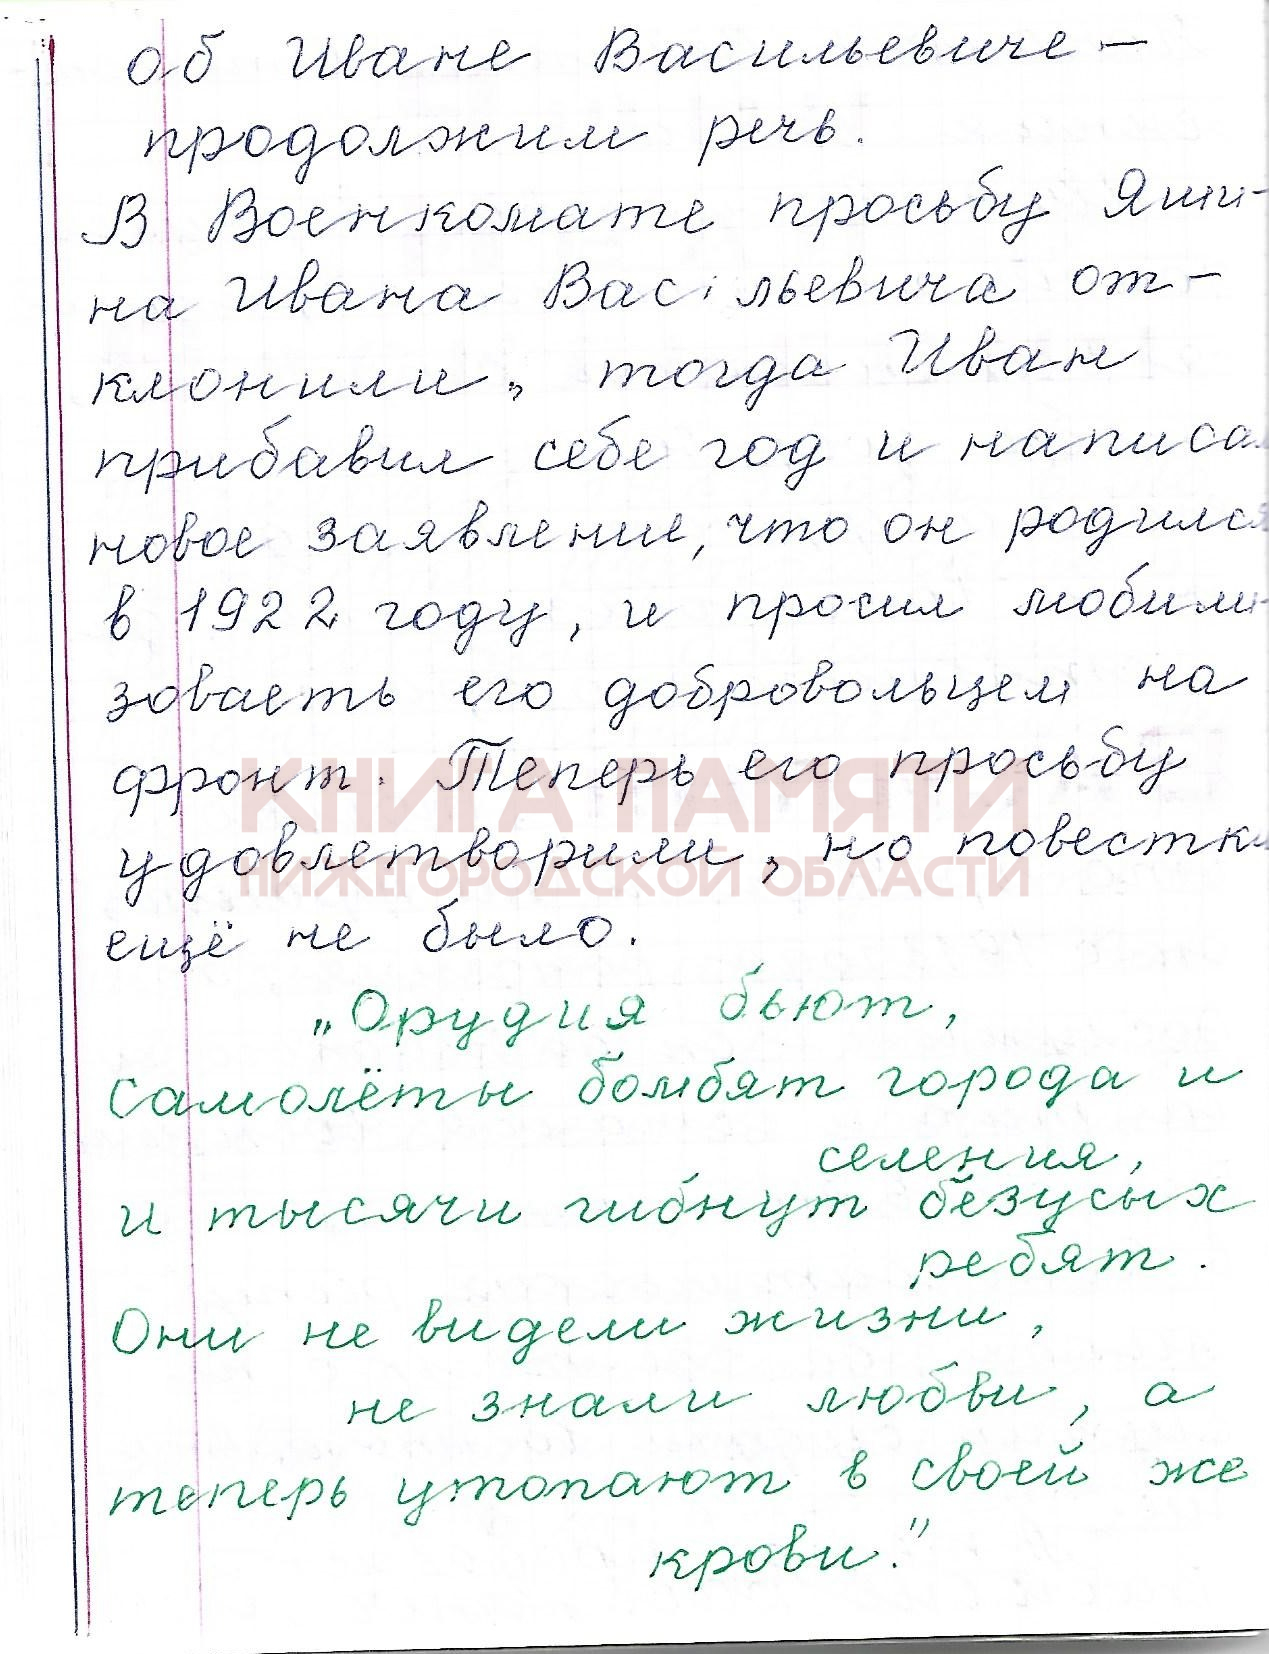 об Иване Васильевиче –
продолжим речь.
В Военкомате просьбу Яши-
на Ивана Васильевича от-
клонили, тогда Иван
прибавил себе год и написал
новое заявление, что он родился
в 1922 году, и просил мобили-
зоваеть его добровольцем на
фронт. Теперь его просьбу
КНИГА ПАМЯТИ
удовлетворили, но повестки
НИЖЕГОРОДСКОЙ ОБЛАСТИ
ещё не было.
„Орудия бьют,
Самолёты бомбят города и
селения,
и тысячи гибнут безусых
ребят.
Они не видели жизни,
не знали любви, а
теперь утопают в своей же
крови."